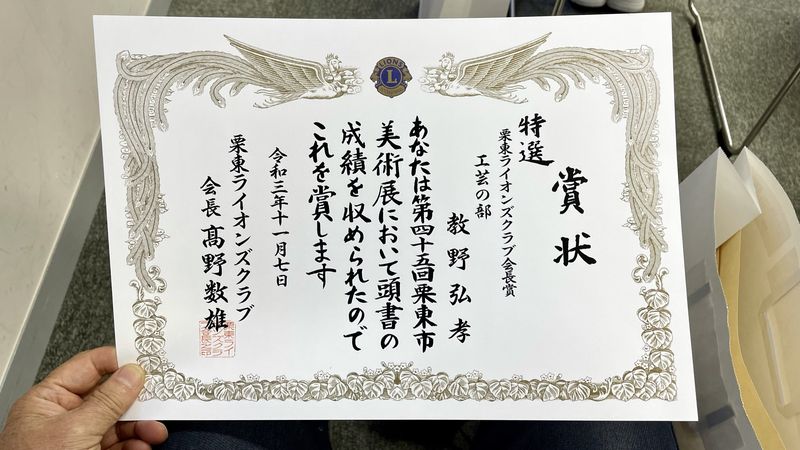 賞状
特選
栗東ライオンズクラブ会長賞
工芸の部
教野弘孝
あなたは第四十五回栗東市
美術展において頭書の
成績を収められたので
これを賞します
令和三年十一月七日
栗東ライオンズクラブ
会長 髙野数雄
LIONS
L